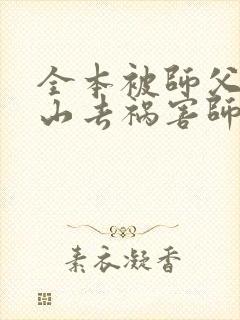 全本被師父
山去祸害師
素衣凝香